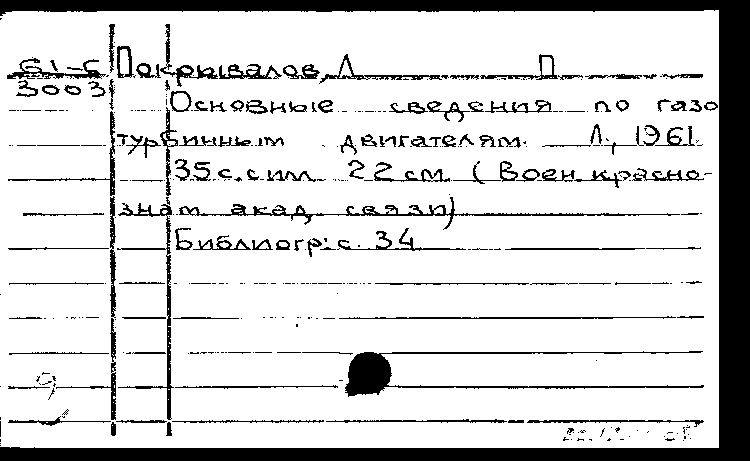 61-5 Покрывалов, Л П
3003 Основные сведения по газо
турбинным двигателям. Л., 1961.
35 с. с ил. 22 см. (Воен. красно-
знам. акад. связи)
Библиогр: с. 34
9